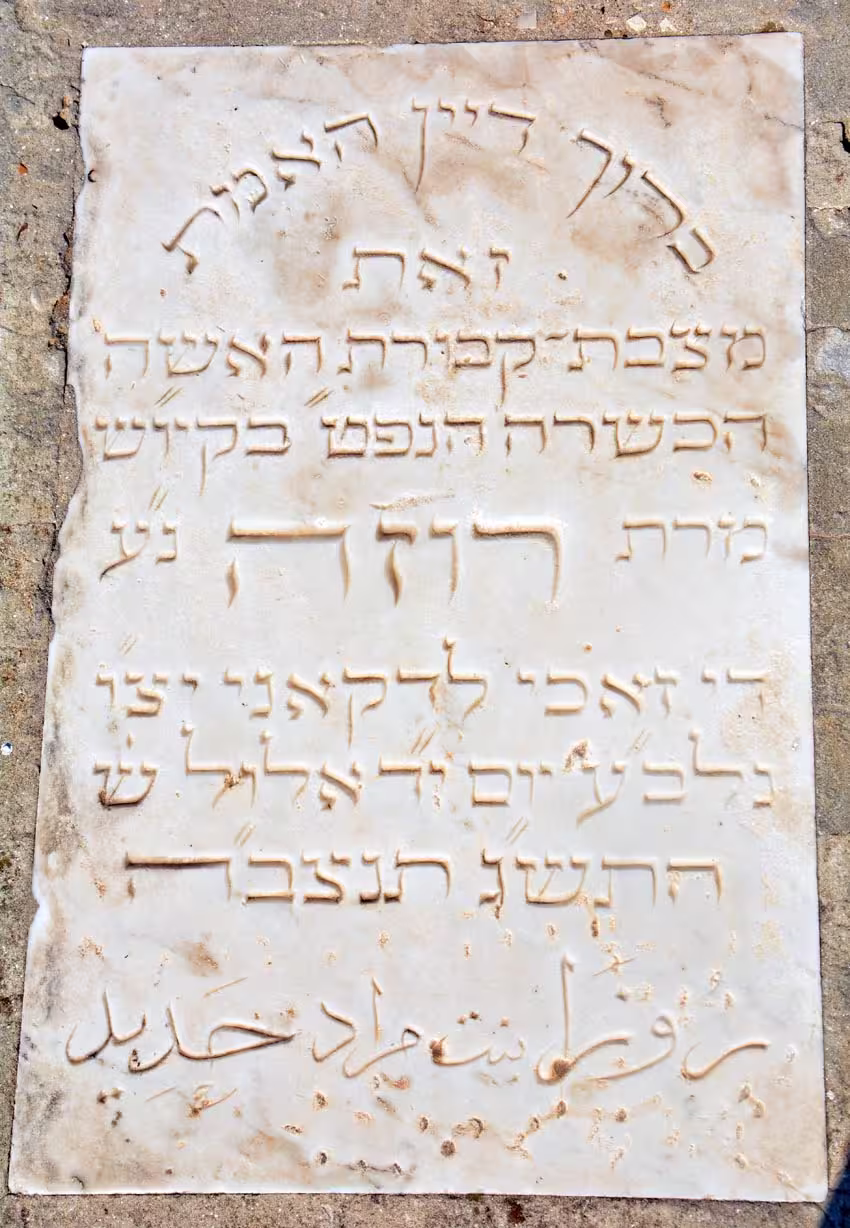 ברוך דיין האמת
זאת
מצבת־קבורת האשה
הכשרה הנפט״ בקי״ש
מרת רוזה נ״ע
די זאכי לדקאני יצ״ו
נלב״ע יום י״ד אלול ש׳
התש״נ תנצב״ה
روزا بنت مراد حديد